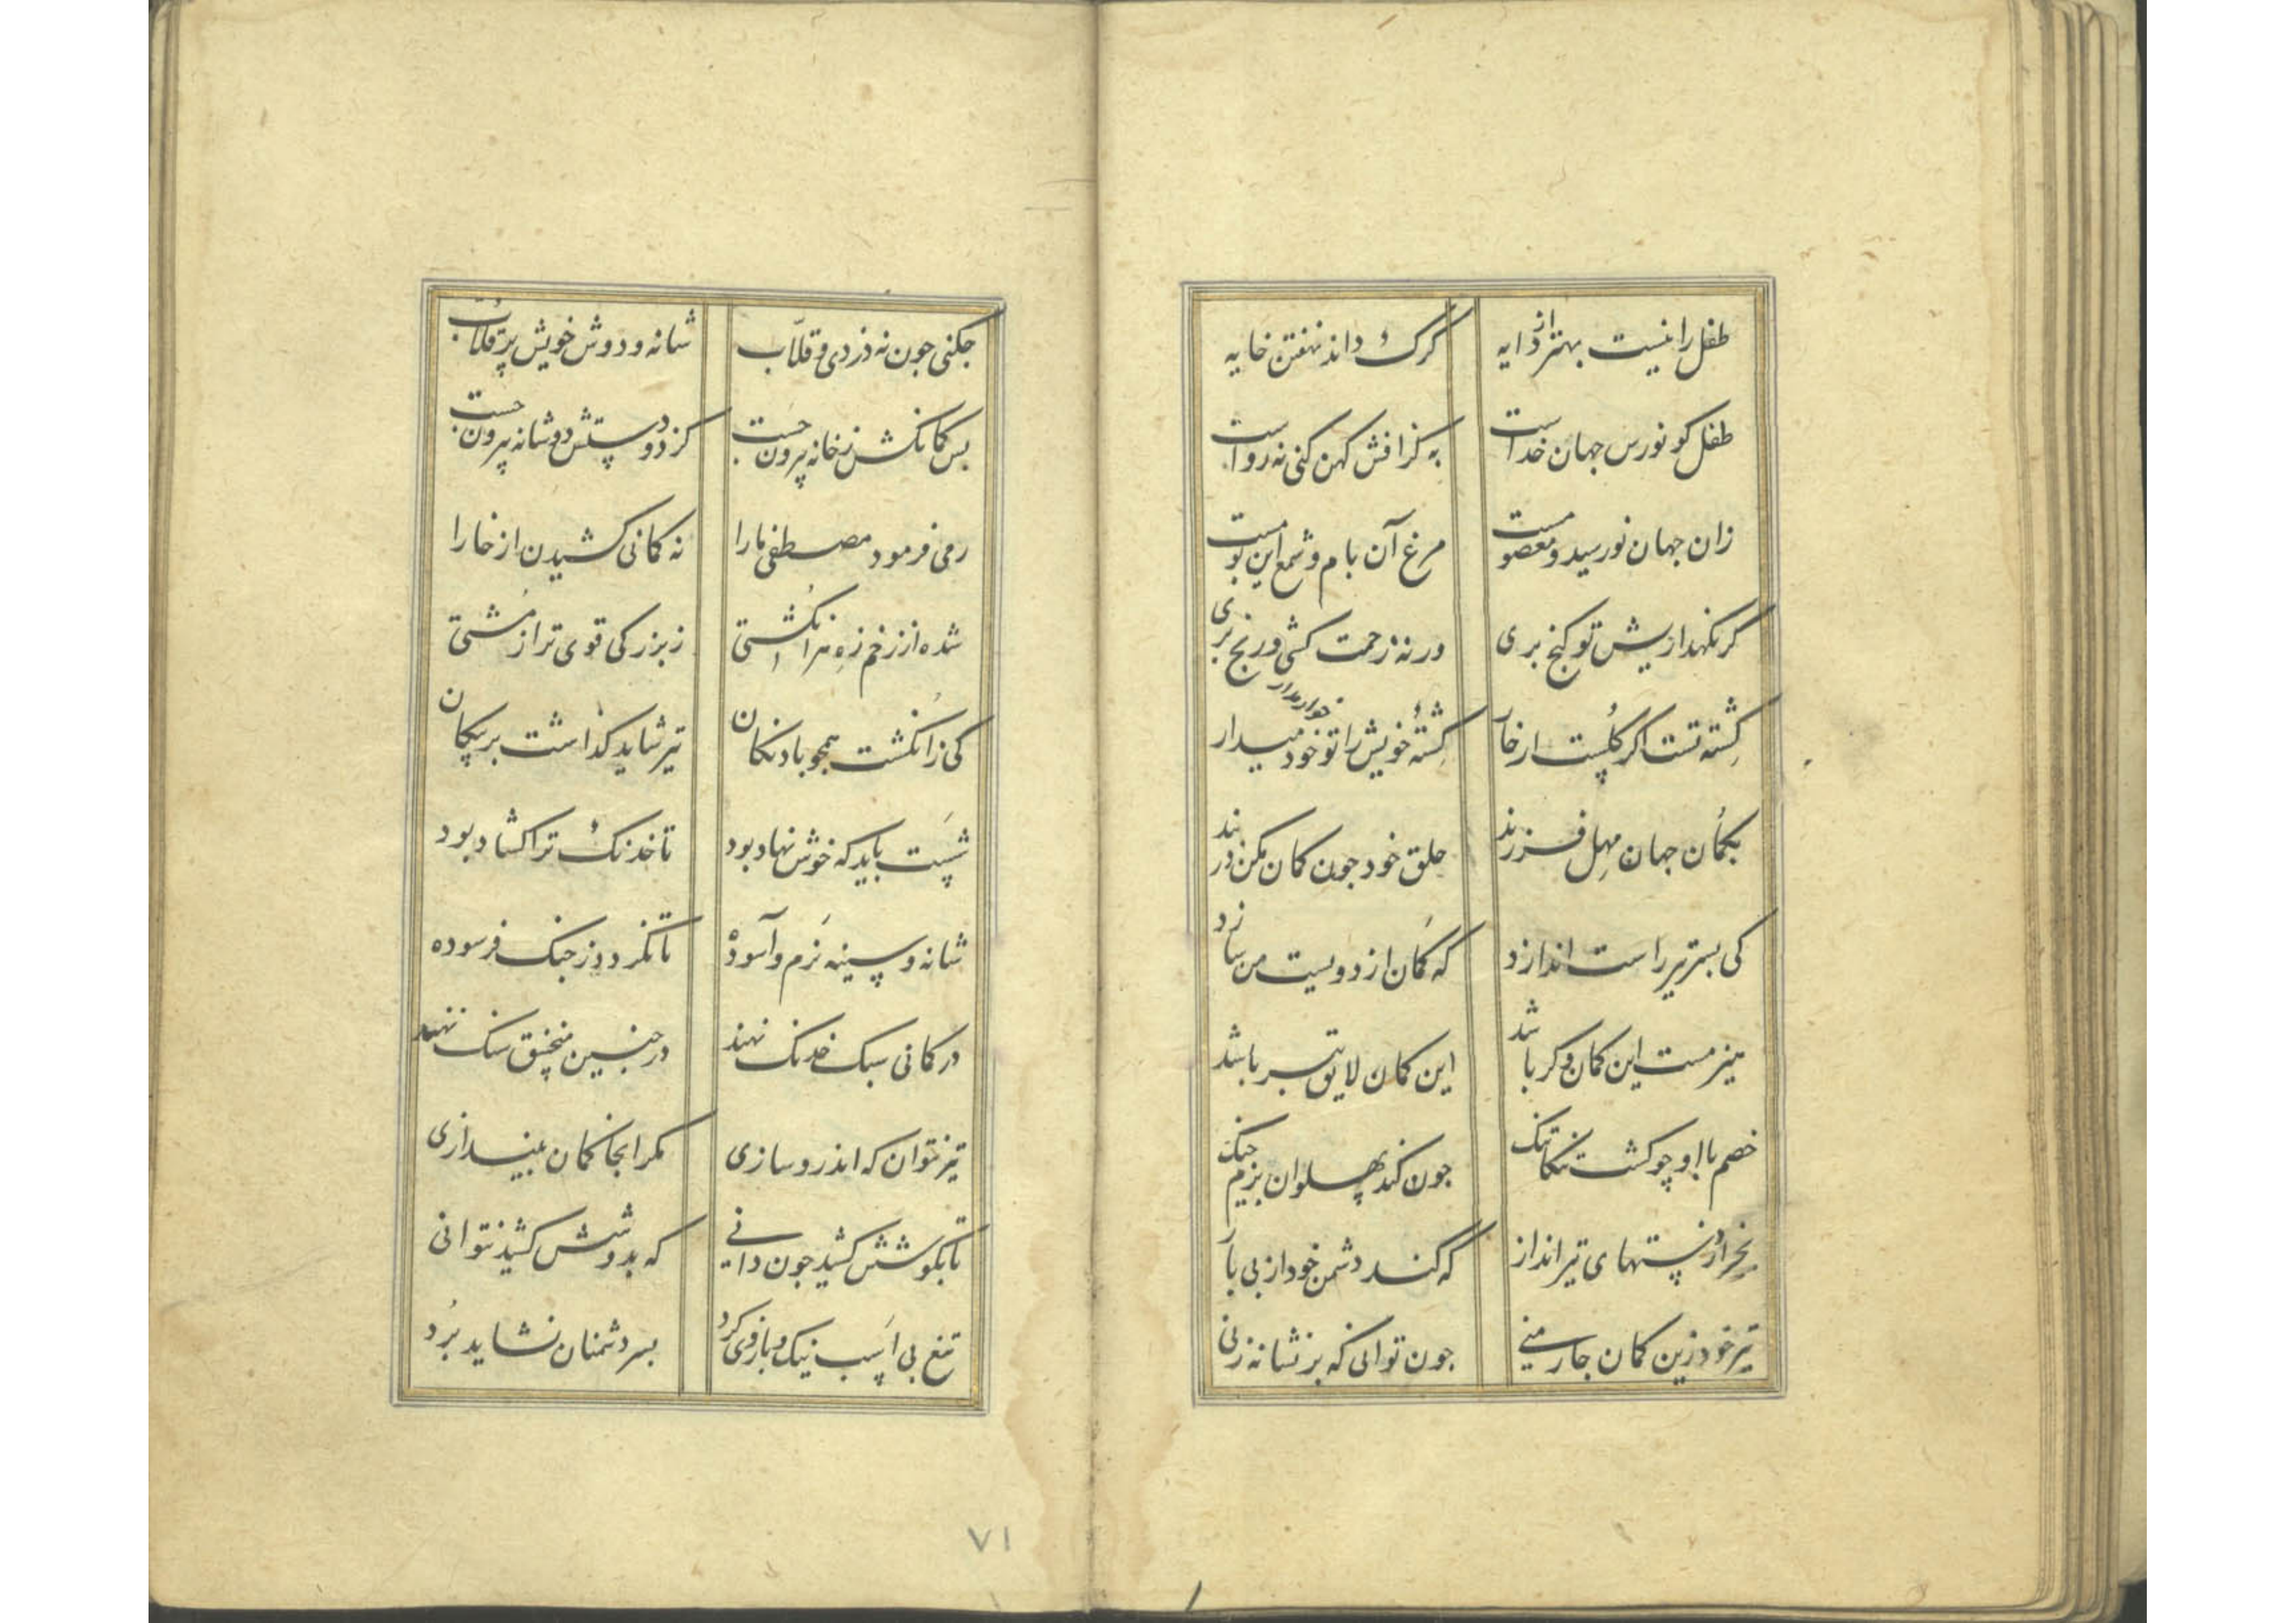 طفل را نیست بهتر از دایه کرک داند نهفتن خایه
طفل کو نورس جهان خداست به کزافش کهن کنی نه رواست
زان جهان نو رسید و معصومست مرغ آن بام و شمع این بومست
کر نکهداریش تو کنج بری ورنه زحمت کشی و رنج بری
کِشته تست اکر کُلست ار خار کِشتهٔ خویش را تو خود میدار
خوار مدار
بکمان جهان مهِل فرزند حلق خود جون کمان مکن در بند
کی بستر تیر راست اندازد که کمان از دویست من سازد
میزمست این کمان و کر باشد این کمان لایق تبر باشد
خصم باا و چو کشت تنکاتنک جون کند پهلوان بزیم جنک
بجز از دستهای تیرانداز که کند دشمن خود از پی باز
تیر خود زین کمان جار منی جون توانی که بر نشانه زنی
جکنی جون نه دزدی و قلاّب شانه و دوش خویش پر قلاب
بس کمانکش ز خانه بیرون جست کز دو دستش دو شانه بیرون جست
رمی فرمود مصطفی ما را نه کمانی کشیدن از خارا
شده از زخم زه نر انکشتی ز بزرکی قوی تر از مشتی
کی ز انکشت همجو بادنکان تیر شاید کذاشت بر پیکان
شست باید که خوش نهاد بود تا خدنک ترا کشاد بود
شانه و سینه نرم و آسوده تا نکردد ز جنک فرسوده
در کمانی سبک خدنک نهند در جنین منجنیق سنک نهند
تیر نتوان که اندرو سازی مکر اینجا کمان بیندازی
تا بکوشش کشید جون دانی که بدوشش کشید نتوانی
تیغ بی اسب نیک و بازوی کرد بسر دشمنان نشاید بُرد
۷۱